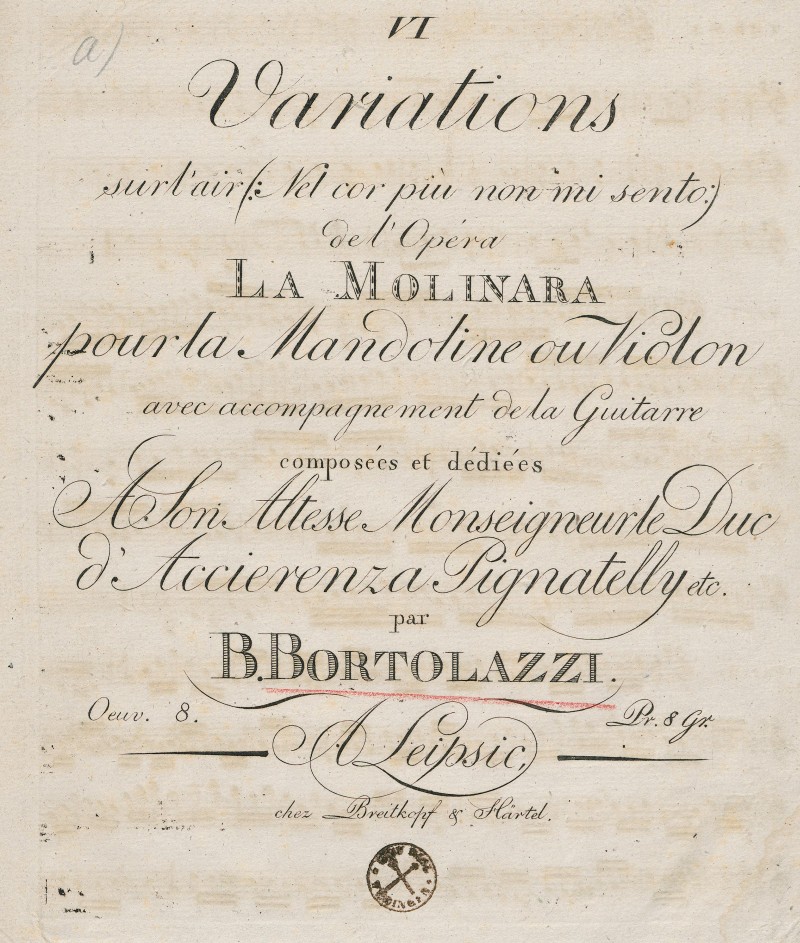 a)
VI
Variations
sur l'air (: Nel cor più non mi sento :)
de l'Opéra
LA MOLINARA
pour la Mandoline ou Violon
avec accompagnement de la Guitarre
composées et dédiées
A Son Altesse Monseigneur le Duc
d'Accierenza Pignatelly etc.
par
B. BORTOLAZZI.
Oeuv. 8. Pr. 8 Gr.
A Leipsic,
chez Breitkopf & Härtel.